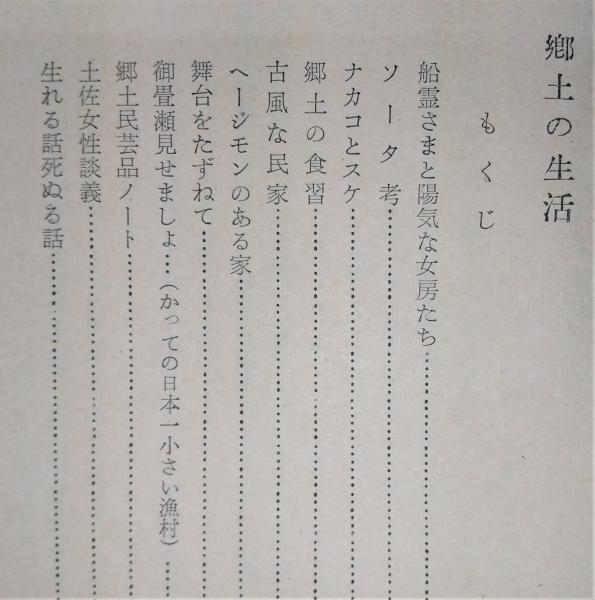 郷土の生活
もくじ
船霊さまと陽気な女房たち……………………
ソータ考……………………
ナカコとスケ……………………
郷土の食習……………………
古風な民家……………………
ヘージモンのある家……………………
舞台をたずねて……………………
御畳瀬見せましょ…(かっての日本一小さい漁村)……
郷土民芸品ノート……………………
土佐女性談義……………………
生れる話死ぬる話……………………